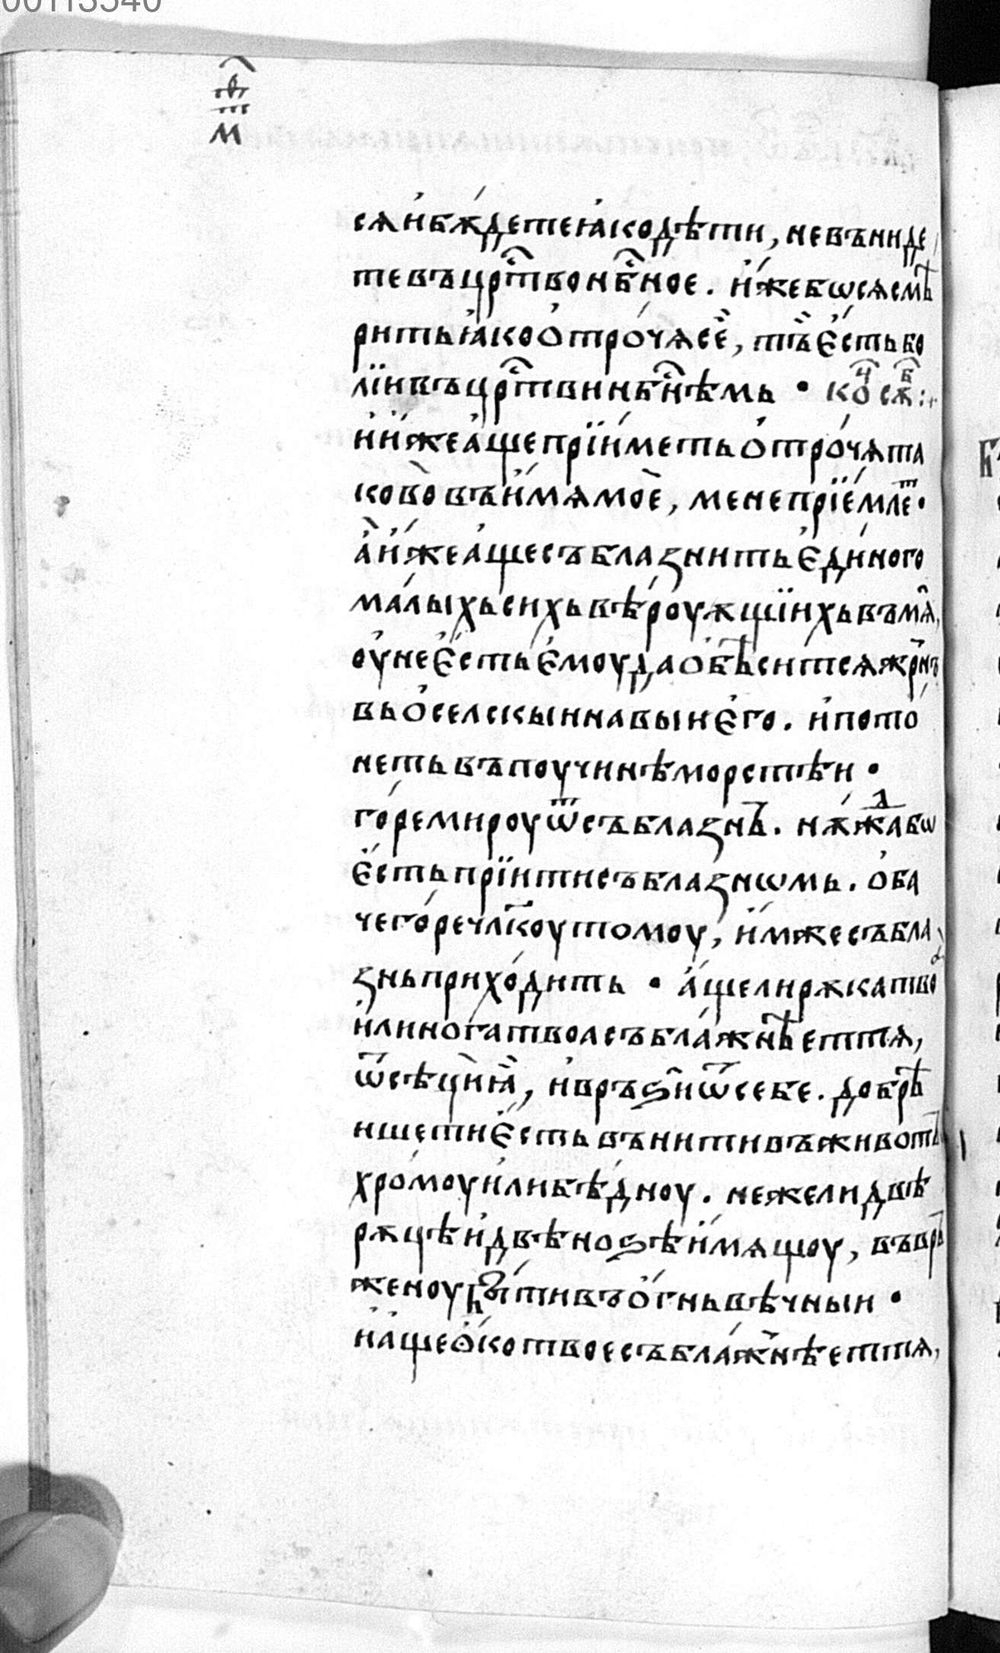 00113540
сѧ и бѫдете ꙗко дѣти, не въниде
те въ црⷭ҇тво нбⷭ҇ное. иже бѡ сѧ смѣ
рить ꙗко отрочѧ се, тъ есть бо
лїи въ црⷭ҇тви нбⷭ҇нѣмь • коⷩ҇ сѫⷠ҇ :·
и иже аще прїиметь отрочѧ та
ково въ имѧ мое, мене прїемлеⷮ •
а иже аще съблазнить единого
малыхь сихь вѣроуѫщїихь въ мѧ,
оуне есть емоу да обѣситсѧ жрънъ
вь оселскыи на выи его. и пото
неть въ поучинѣ морстѣи •
горе мироу ѿ съблазнъ. нѫжⷣа бѡ
есть прїити съблазнѡмь. оба
че горе члⷦ҇оу томоу, имже събла
знь приходить • аще ли рѫка твоꙗ
или нога твоа съблажнѣет тѧ,
ѿсѣци ꙗ, и връѕи ѿ себе. добрѣ
ише ти есть вънити въ животъ
хромоу или бѣдноу. неже ли двѣ
рѫцѣ и двѣ ноѕѣ имѧщоу, въвръ
женоу быти въ огнь вѣчныи •
и аще око твое съблажнѣет тѧ,